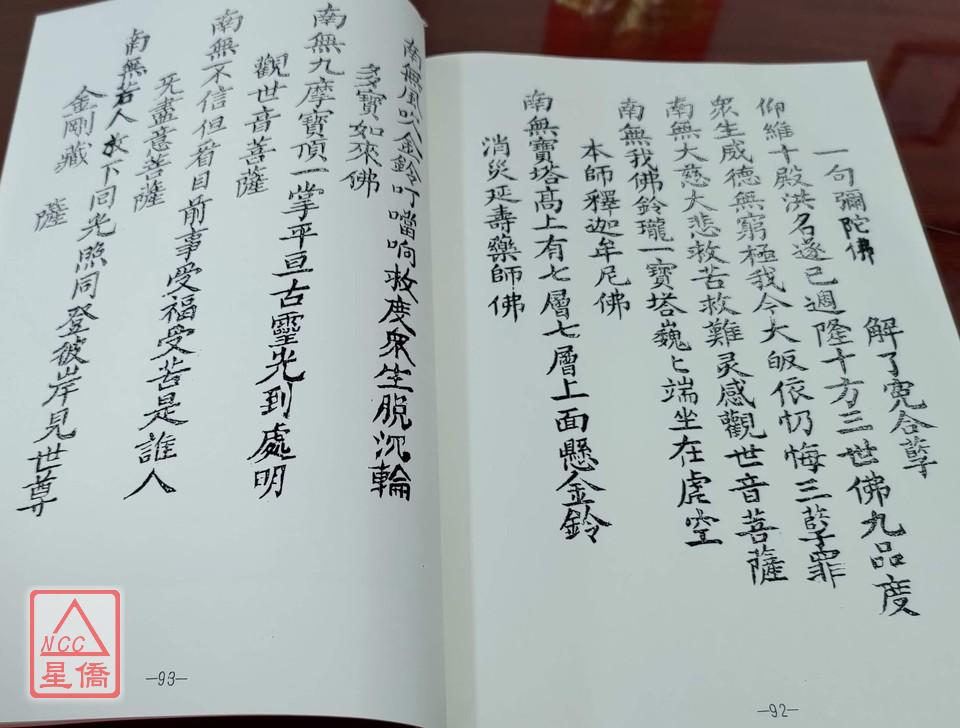 一句彌陀佛 解了冤合孽
仰維十殿洪名遂已週隆十方三世佛九品度
眾生威德無窮極我今大皈依忉悔三孽罪
南無大慈大悲救苦救難灵感觀世音菩薩
南無我佛鈴瓏一寶塔巍々端坐在虛空
本師釋迦牟尼佛
南無寶塔高上有七層七層上面懸金鈴
消災延壽藥師佛
-92-
南無風吹金鈴叮噹响救度眾生脫沉輪
多寶如來佛
南無九摩寶頂一掌平亘古靈光到處明
觀世音菩薩
南無不信但看目前事受福受苦是誰人
牙盡意菩薩
南無若人下同光照同登彼岸見世尊
金剛藏 薩
-93-
NCC
星僑